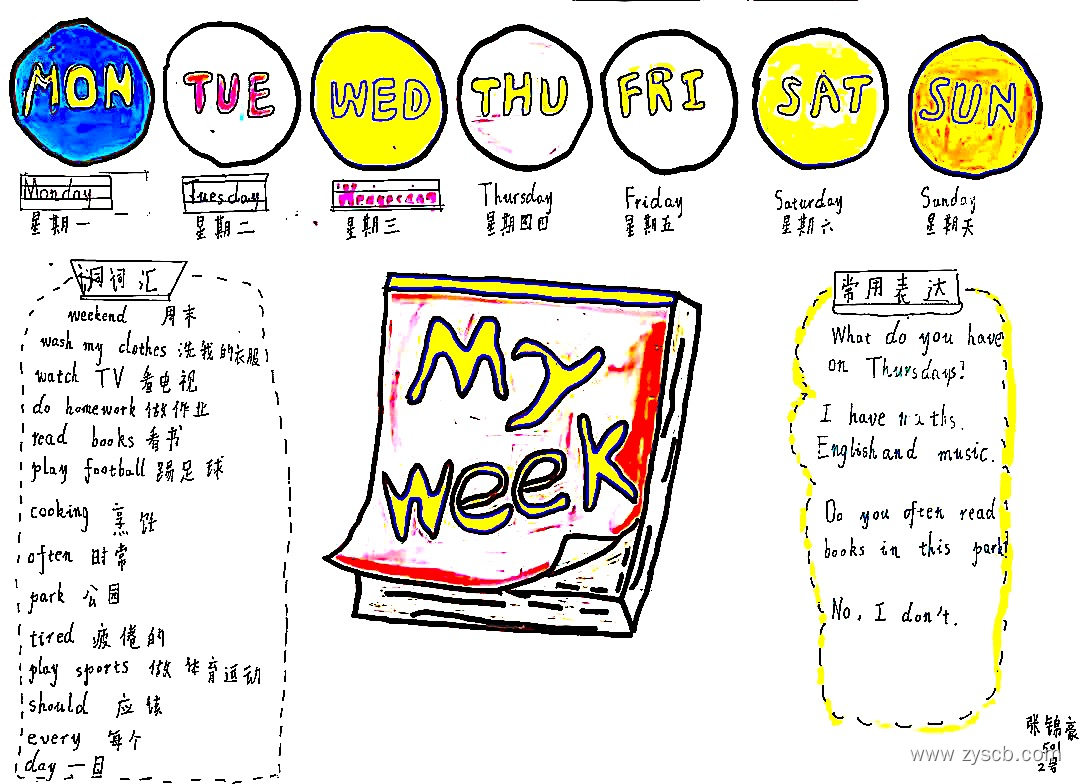 MON TUE WED THU FRI SAT SUN
Monday Tuesday Thursday Friday Saturday Sunday
星期一 星期二 星期三 星期四 星期五 星期六 星期天
词汇
weekend 周末
wash my clothes 洗我的衣服
watch TV 看电视
do homework 做作业
read books 看书
play football 踢足球
cooking 烹饪
often 时常
park 公园
tired 疲倦的
play sports 做体育运动
should 应该
every 每个
day 一日
My
week
常用表达
What do you have
on Thursdays?
I have maths.
English and music.
Do you often read
books in this park?
No, I don't.
张锦豪
501
2号
www.zyscb.com